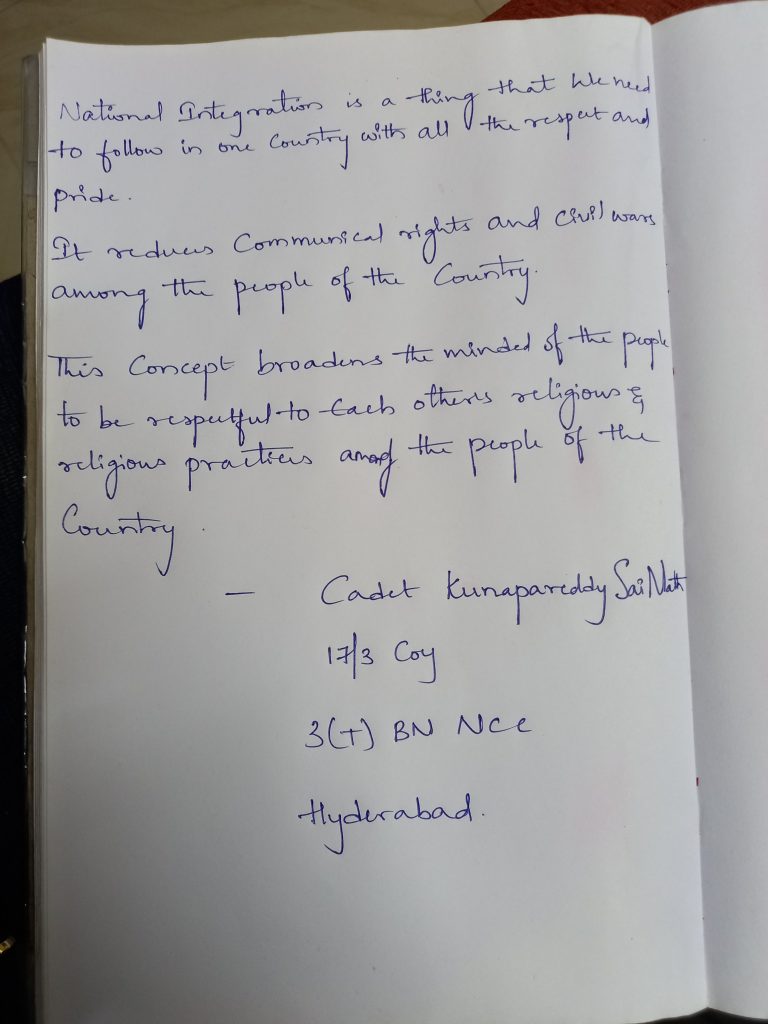 National Integration is a thing that we need
to follow in one Country with all the respect and
pride.
It reduces Communical rights and civil wars
among the people of the Country.
This Concept broadens the minded of the people
to be respectful to Each others religious &
religious practices among the people of the
Country.
- Cadet Kunapareddy Sai Nath
17/3 Coy
3(T) BN NCC
Hyderabad.